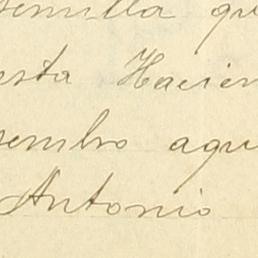 semilla qu
esta Hacien
sembro aqu
Antonio